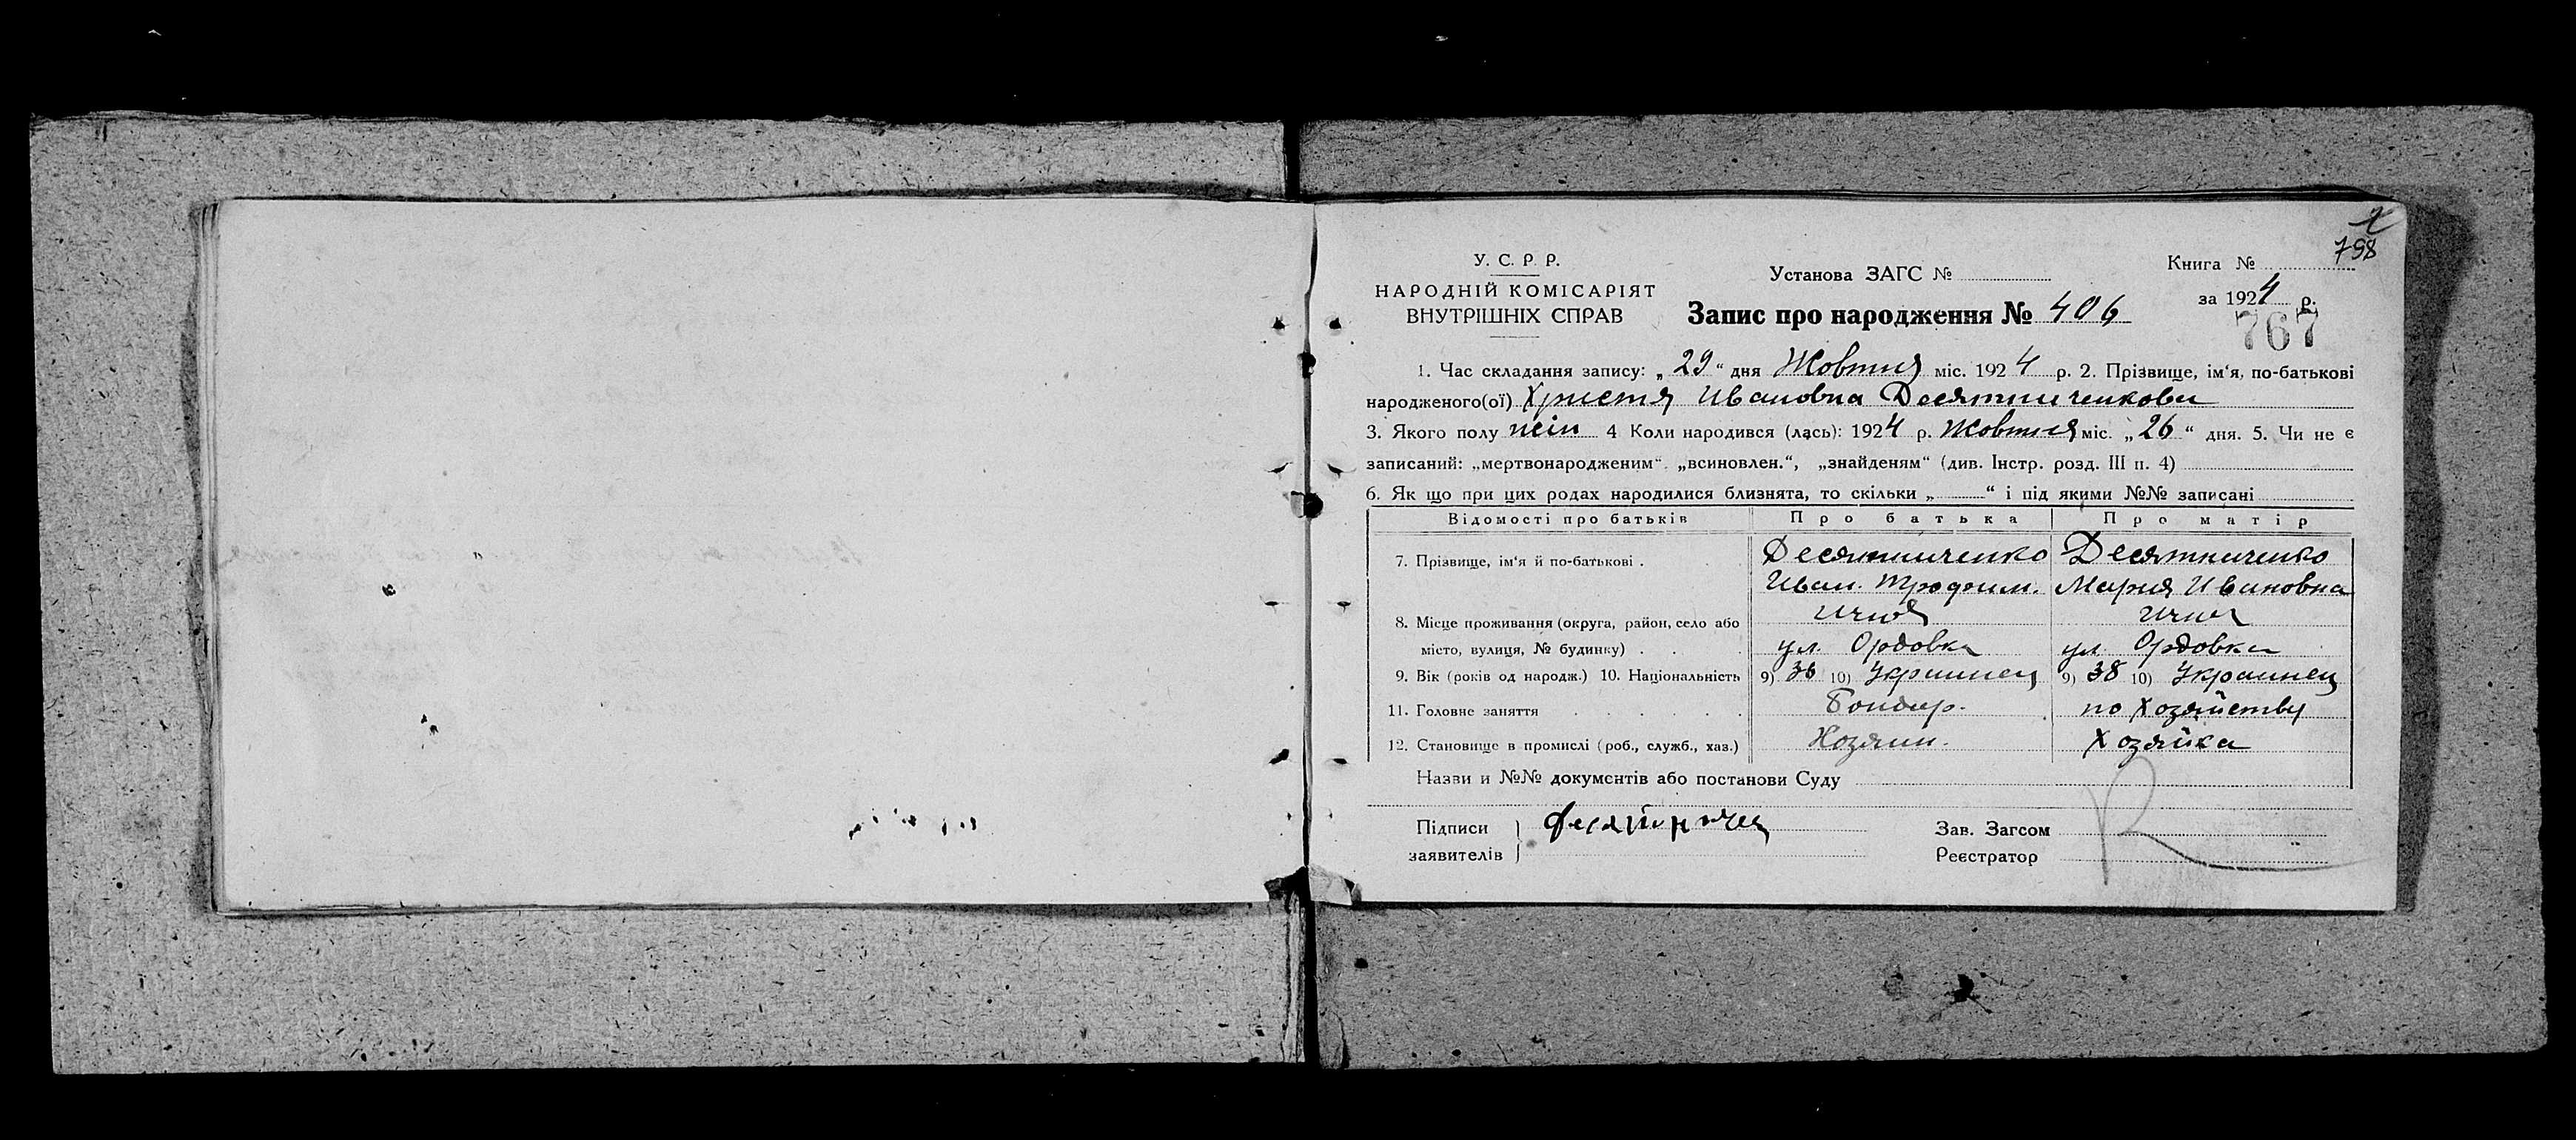 798
У. С. Р. Р.
НАРОДНІЙ КОМІСАРІЯТ
ВНУТРІШНІХ СПРАВ
Установа ЗАГС №
Книга №
за 1924 р.
Запис про народження № 406
767
1. Час складання запису: „29“ дня Жовтня міс. 1924 р. 2. Прізвище, ім‘я, по-батькові
народженого(ої) Христя Ивановна Десятниченкова
3. Якого полу жін 4 Коли народився (лась): 1924 р. Жовтня міс. „26“ дня. 5. Чи не є
записаний: „мертвонародженим“. „всиновлен.“, „знайденям“ (див. Інстр. розд. III п. 4)
6. Як що при цих родах народилися близнята, то скільки „ “ і під якими №№ записані
Відомості про батьків Про батька Про матір
7. Прізвище, ім‘я й по-батькові . Десятниченко Десятниченко
Иван. Трофим. Мария Ивановна
8. Місце проживання (округа, район, село або Ичня Ичня
місто, вулиця, № будинку) . . ул. Ордовка ул. Ордовка
9. Вік (років од народж.) 10. Національність 9) 36 10) Украинец 9) 38 10) Украинец
11. Головне заняття . . . . . . Бондар. по хозяйству
12. Становище в промислі (роб., служб., хаз.) Хозяин. Хозяйка
Назви и №№ документів або постанови Суду
Підписи
заявителів
Зав. Загсом
Реєстратор